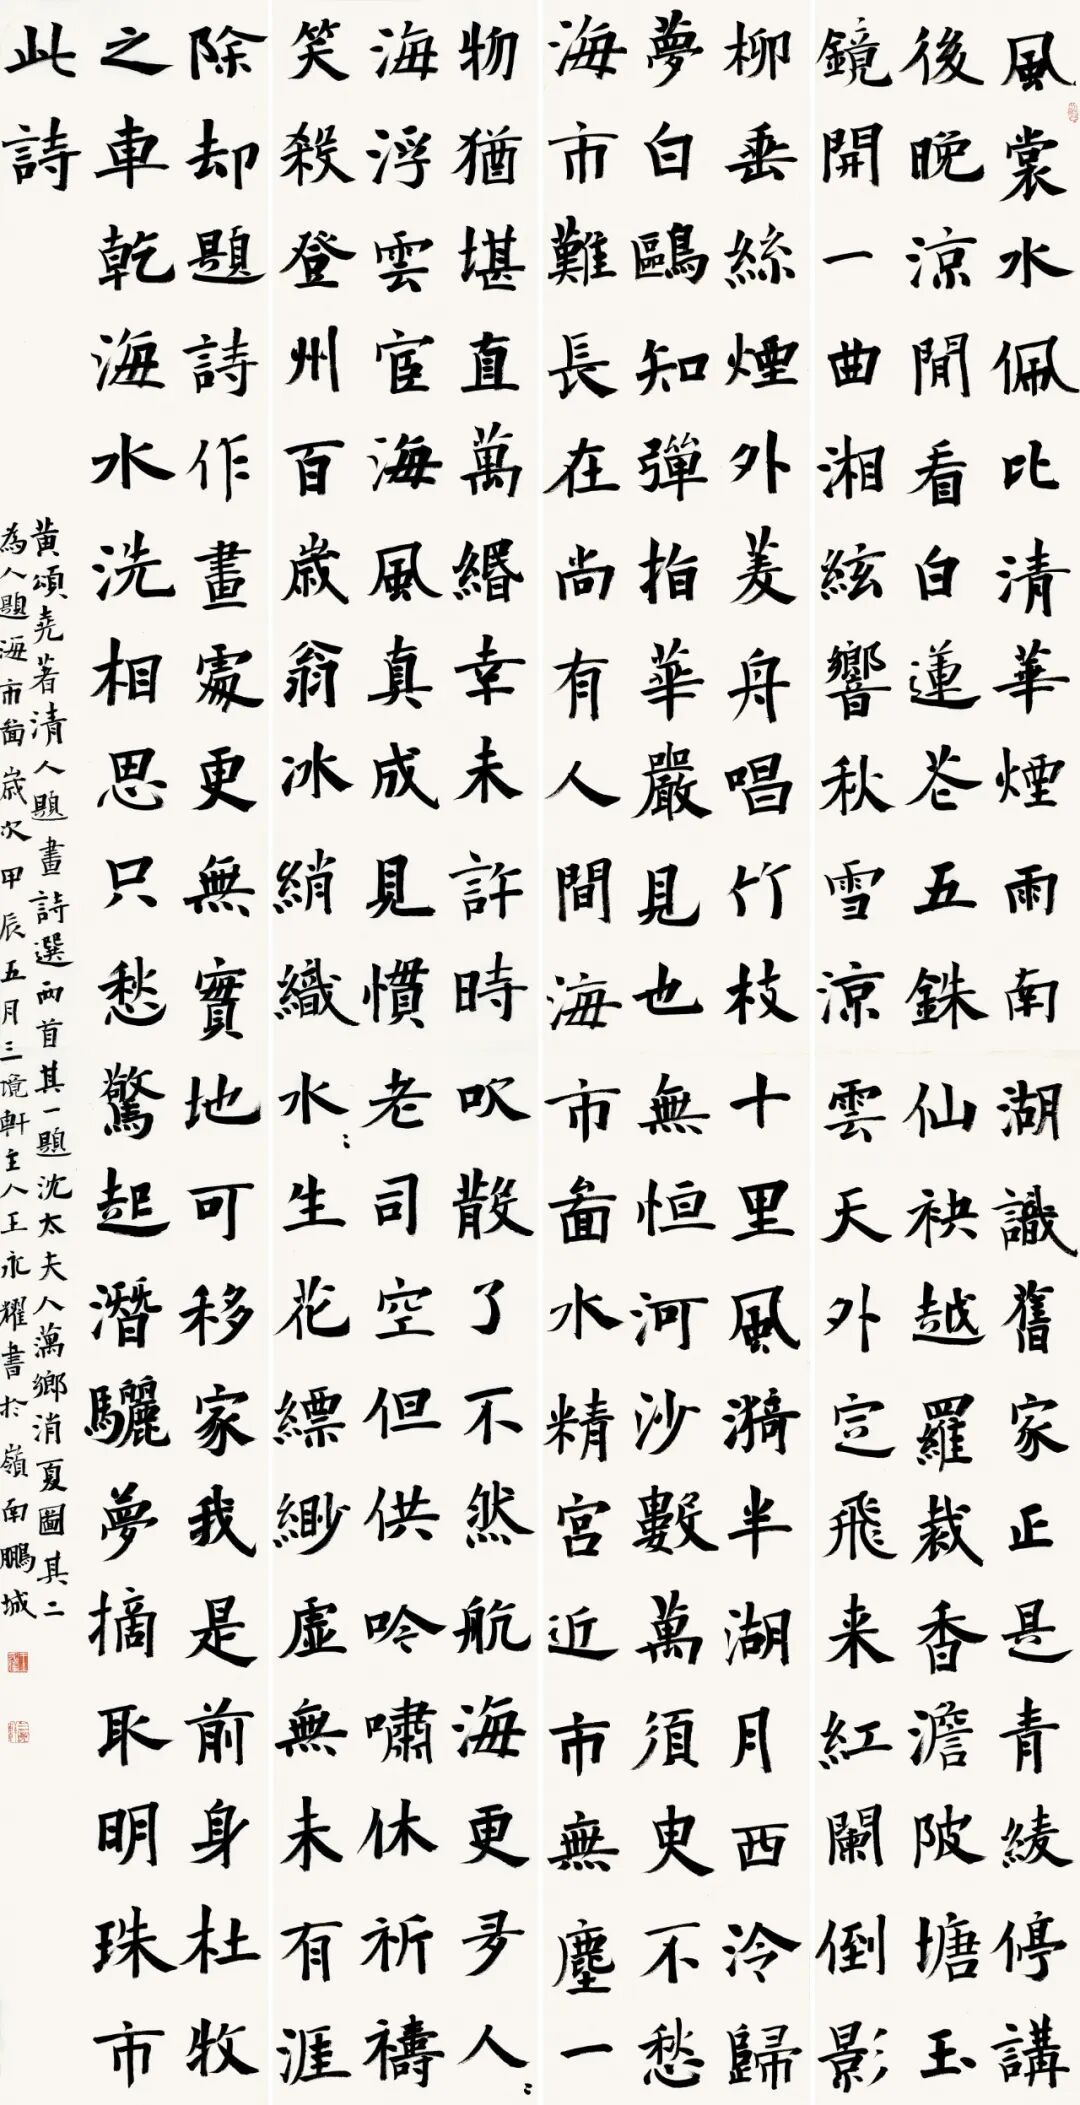 風裳水佩比清華煙雨南湖識舊家正是青綾停講
後晚涼閒看白蓮花五銖仙袂越羅裁香澹陂塘玉
鏡開一曲湘絃響秋雪涼雲天外定飛来紅闌倒影
柳垂絲煙外菱舟唱竹枝十里風漪半湖月西泠歸
夢白鷗知彈指華嚴見也無恒河沙數萬須臾不愁
海市難長在尚有人間海市啚水精宮近市無塵一
物猶堪直萬緡幸未許時吹散了不然航海更多人〻
海浮雲宦海風真成見慣老司空但供吟嘯休祈禱
笑殺登州百歲翁冰綃織水〻生花縹緲虛無未有涯
除却題詩作畫處更無實地可移家我是前身杜牧
之車乾海水洗相思只愁驚起潛驪夢摘取明珠市
此詩
黃頌堯著清人題畫詩選兩首其一題沈太夫人萬鄉消夏圖其二
為人題海市啚歲次甲辰五月三境軒主人王永耀書於嶺南鵬城